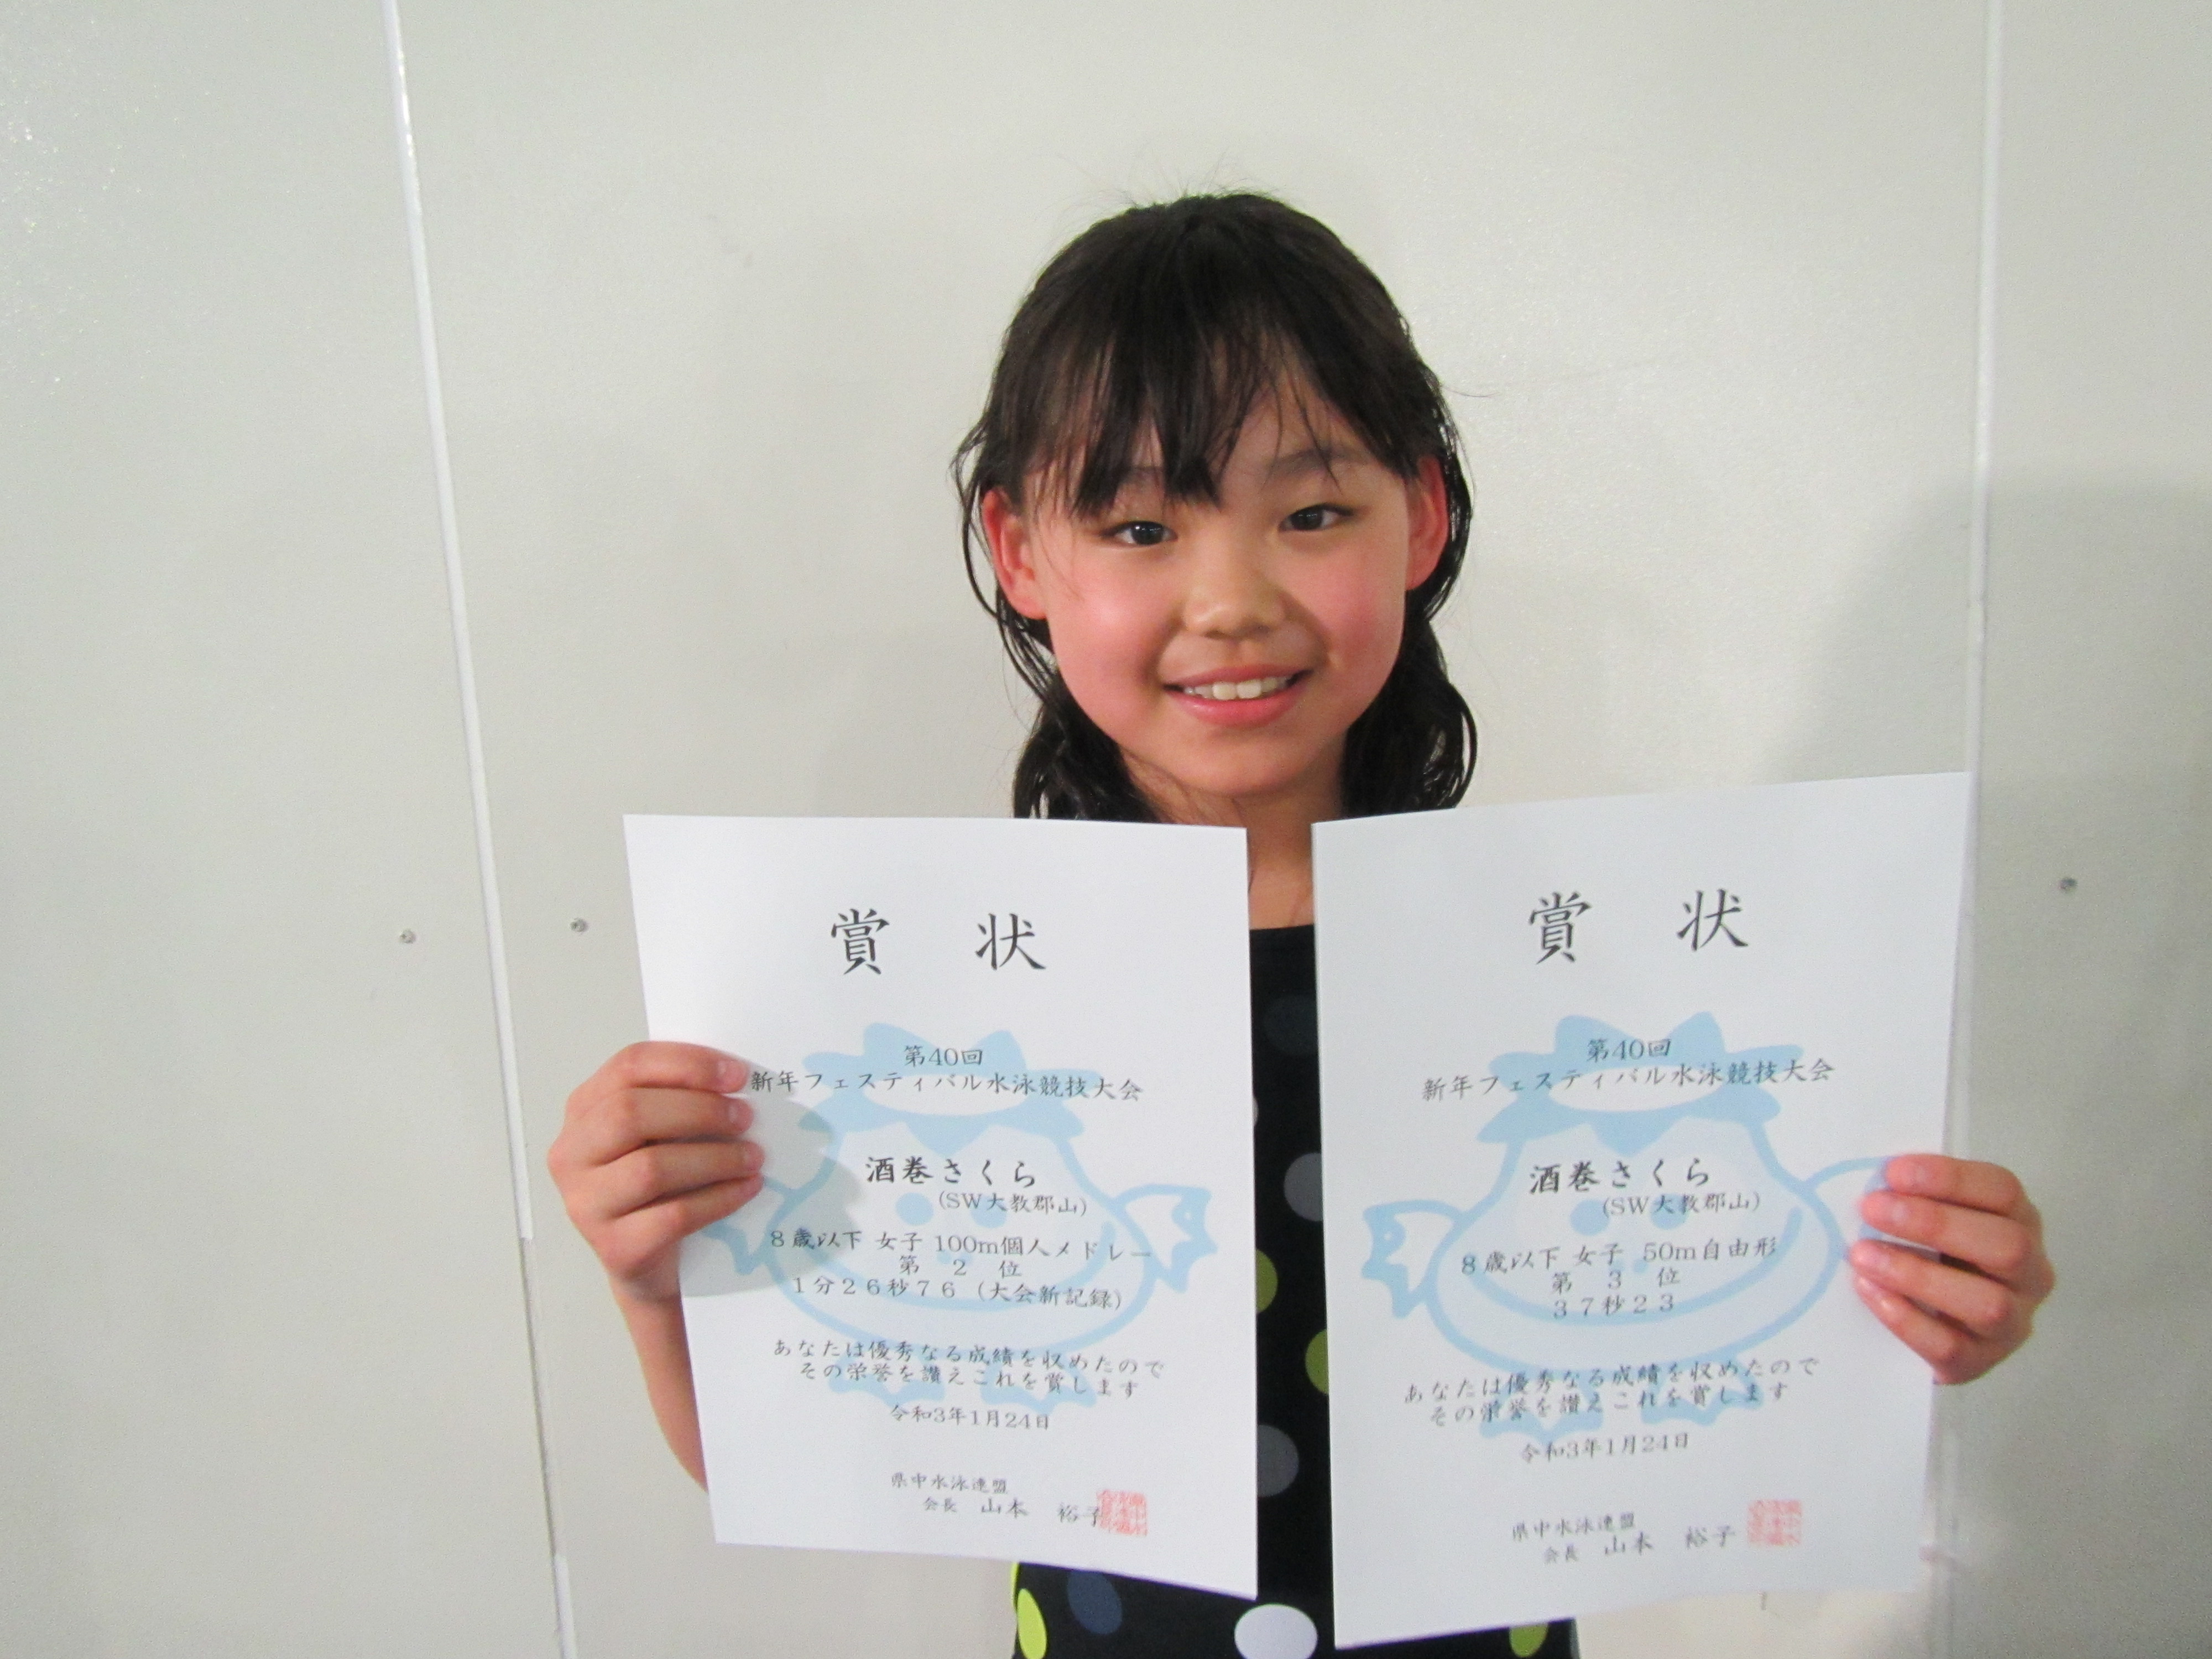 賞 状
第40回
新年フェスティバル水泳競技大会
酒巻さくら
(SW大教郡山)
8歳以下 女子 100m個人メドレー
第 2 位
1分26秒76 (大会新記録)
あなたは優秀なる成績を収めたので
その栄誉を讃えこれを賞します
令和3年1月24日
県中水泳連盟
会長 山本 裕子
賞 状
第40回
新年フェスティバル水泳競技大会
酒巻さくら
(SW大教郡山)
8歳以下 女子 50m自由形
第 3 位
37秒23
あなたは優秀なる成績を収めたので
その栄誉を讃えこれを賞します
令和3年1月24日
県中水泳連盟
会長 山本 裕子